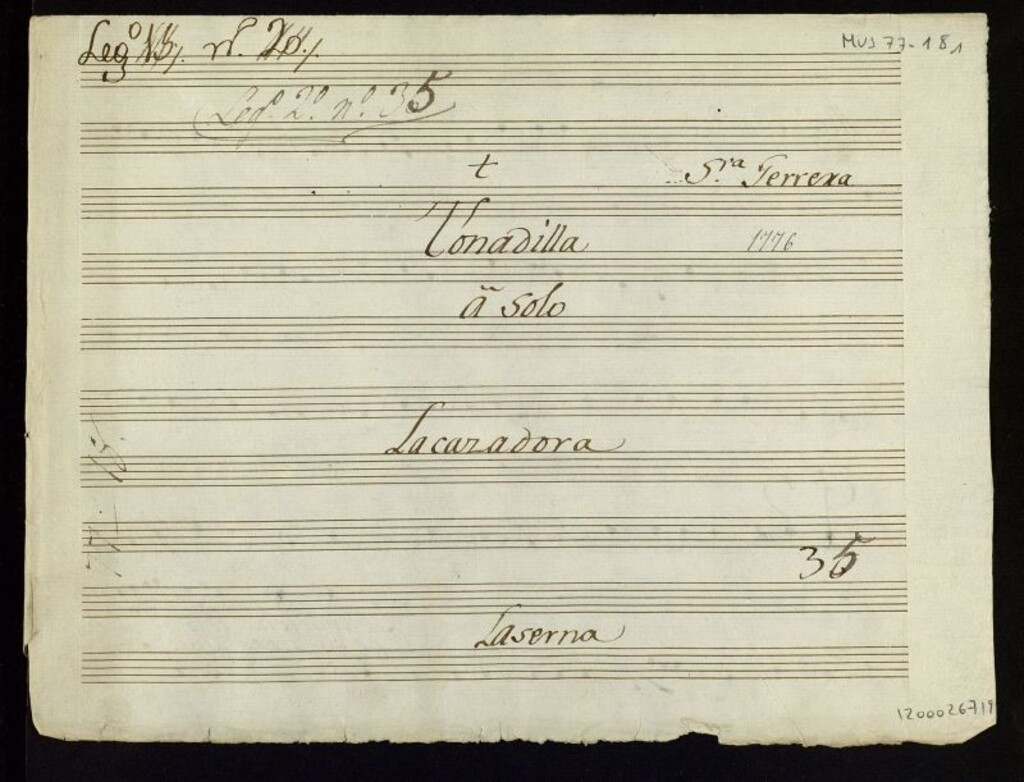 Leg.º nº.
MUS 77-18,
Leg.º 2.º n.º 35
+
S.ra Ferrera
Tonadilla
1776
a solo
La cazadora
35
Laserna
1200026719